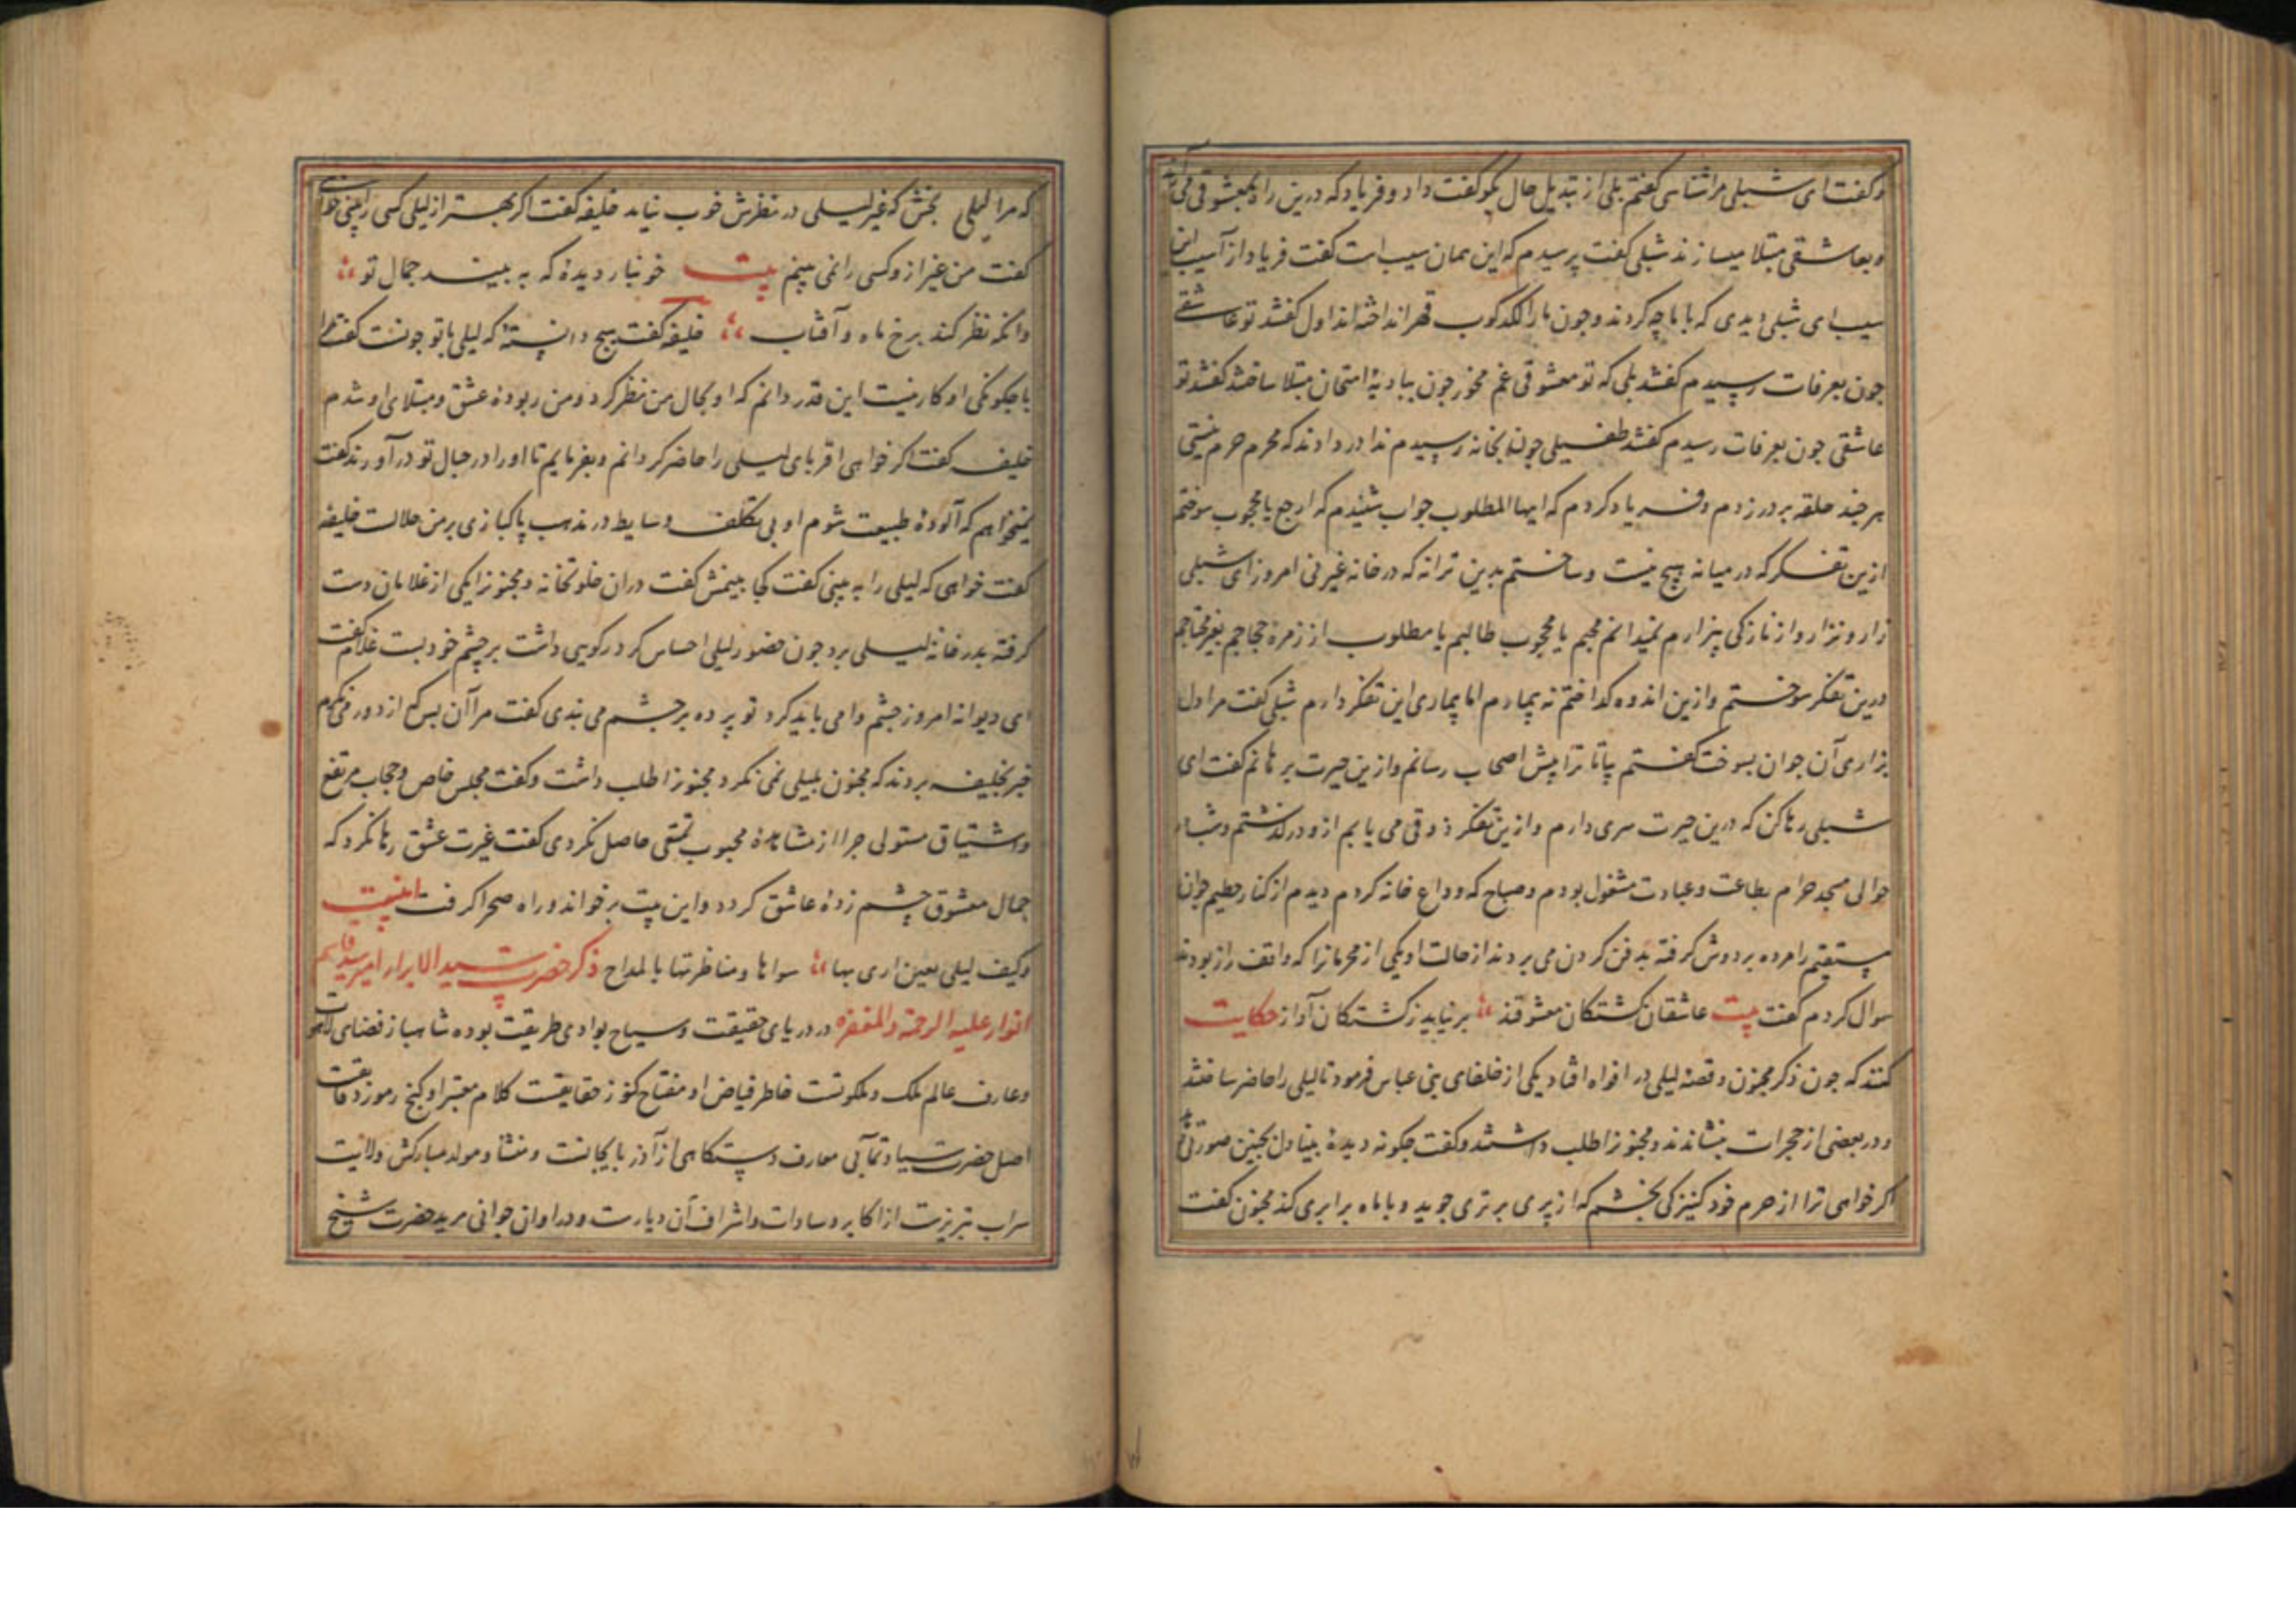 و گفت ای شبلی مرا شناسی گفتم بلی از تبدیل حال بگو گفت داد و فریاد که درین راه بمعشوقی می آرند
و بعاشقی مبتلا میسازند شبلی گفت پرسیدم که این همان سیب است گفت فریاد از آسیب این
سیب ای شبلی دیدی که با ما چه کردند و چون ما را لکدکوب قهر انداخته اند اول گفتند تو عاشقی
چون بعرفات رسیدم گفتند بلی که تو معشوقی غم مخور چون ببادیهٔ امتحان مبتلا ساختند گفتند تو
عاشقی چون بعرفات رسیدم گفتند طفیلی چون بخانه رسیدم ندا در دادند که محرم حرم نیستی
هر چند حلقه بر در زدم و فریاد کردم که ایها المطلوب جواب شنیدم که ارجع یا محجوب سوختم
ازین تفکر که در میانه هیچ نیست و ساختم بدین ترانه که در خانه غیر نی امروز ای شبلی
زار و نزار و از نازکی بیزارم نمیدانم محبم یا محبوب طالبم یا مطلوب از زمرهٔ حجاجم
درین تفکر سوختم و ازین اندوه کداختم نه بیمارم اما بیماری این تفکر دارم شبلی گفت مرا دل
بزاری آن جوان بسوخت گفتم بیا تا ترا پیش اصحاب رسانم و ازین حیرت برهانم گفت ای
شبلی رها کن که درین حیرت سری دارم و ازین تفکر ذوقی می یابم ازو درکذشتم و شبانه
حوالی مسجد حرام بطاعت و عبادت مشغول بودم و صباح که وداع خانه کردم دیدم از کنار حطیم جوان
مستقیم را مرده بر دوش گرفته بدفن کردن می بردند از حالت او یکی از محرمانرا که واقف راز بودند
سوال کردم گفت بیت عاشقان کشتکان معشوقند بر نیاید ز کشتکان آواز حکایت
کنند که چون ذکر مجنون و قصهٔ لیلی در افواه افتاد یکی از خلفای بنی عباس فرمود تا لیلی را حاضر ساختند
و در بعضی از حجرات بنشاندند و مجنونرا طلب داشتند و گفت چکونه دیدهٔ بینا دل بچنین صورتی
اکر خواهی ترا از حرم خود کنیزکی بخشم که از پری برتری جوید و با ماه برابری کند مجنون گفت
که مرا لیلی بخش که غیر لیلی در نظرش خوب نیاید خلیفه گفت اکر بهتر از لیلی کسی را بینی خواهی
گفت من غیر از و کسی را نمی بینم بیت خونبار دیدهٔ که به بیند جمال تو
وانکه نظر کند برخ ماه و آفتاب خلیفه گفت هیچ دانستهٔ که لیلی با تو چونست گفت مرا
با چکونکی او کار نیست این قدر دانم که او بحال من نظر کرد و من ربودهٔ عشق و مبتلای او شدم
خلیفه گفت اکر خواهی اقربای لیلی را حاضر کردانم و بفرمایم تا او را در حبال تو در آورند گفت
نمیخواهم که آلودهٔ طبیعت شوم او بی تکلف وسایط در مذهب پاکبازی بر من حلالست خلیفه
گفت خواهی که لیلی را به بینی گفت کجا بینمش گفت در ان خلوتخانه و مجنونرا یکی از غلامان دست
کرفته بدر خانهٔ لیلی برد چون حضور لیلی احساس کرد رکویی داشت بر چشم خود بست غلام گفت
ای دیوانه امروز چشم وا می باید کرد تو پرده بر چشم می بندی گفت مرا آن بس که از دور می نکرم
خبر بخلیفه بردند که مجنون بلیلی نمی نکرد مجنونرا طلب داشت و گفت مجلس خاص و حجاب مرتفع
و اشتیاق مستولی چرا از مشاهدهٔ محبوب تمتعی حاصل نکردی گفت غیرت عشق رها نکرد که
جمال معشوق چشم زدهٔ عاشق کردد و این بیت بر خواند و راه صحرا کرفت بیت
و کیف لیلی بعین اری بها سواها و ما طهرتها بالمدامع ذکر حضرت سید الابرار امیر سید قاسم
انوار علیه الرحمة و المغفره در دریای حقیقت و سیاح بوادی طریقت بوده شاهباز فضای لاهوت
و عارف عالم ملک و ملکوتست خاطر فیاض او مفتاح کنوز حقایقست کلام معتبر او کنج رموز دقایقست
اصل حضرت سیادتمآبی معارف دستکاهی از آذربایجانست و منشا و مولد مبارکش ولایت
سراب تبریزست از اکابر و سادات و اشراف آن دیارست و در اوان جوانی مرید حضرت شیخ